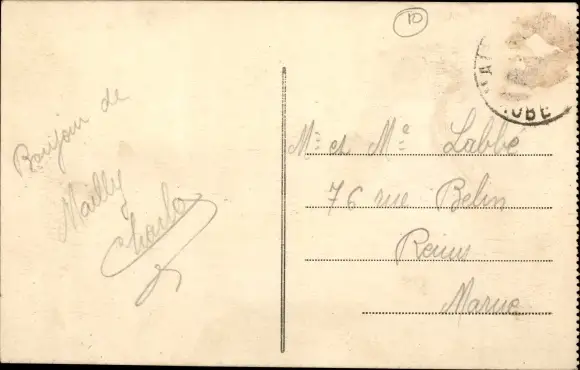 10
AUBE
Bonjour de
Mailly
Charles
Mr et Me Labbé
76 rue Belin
Reims
Marne